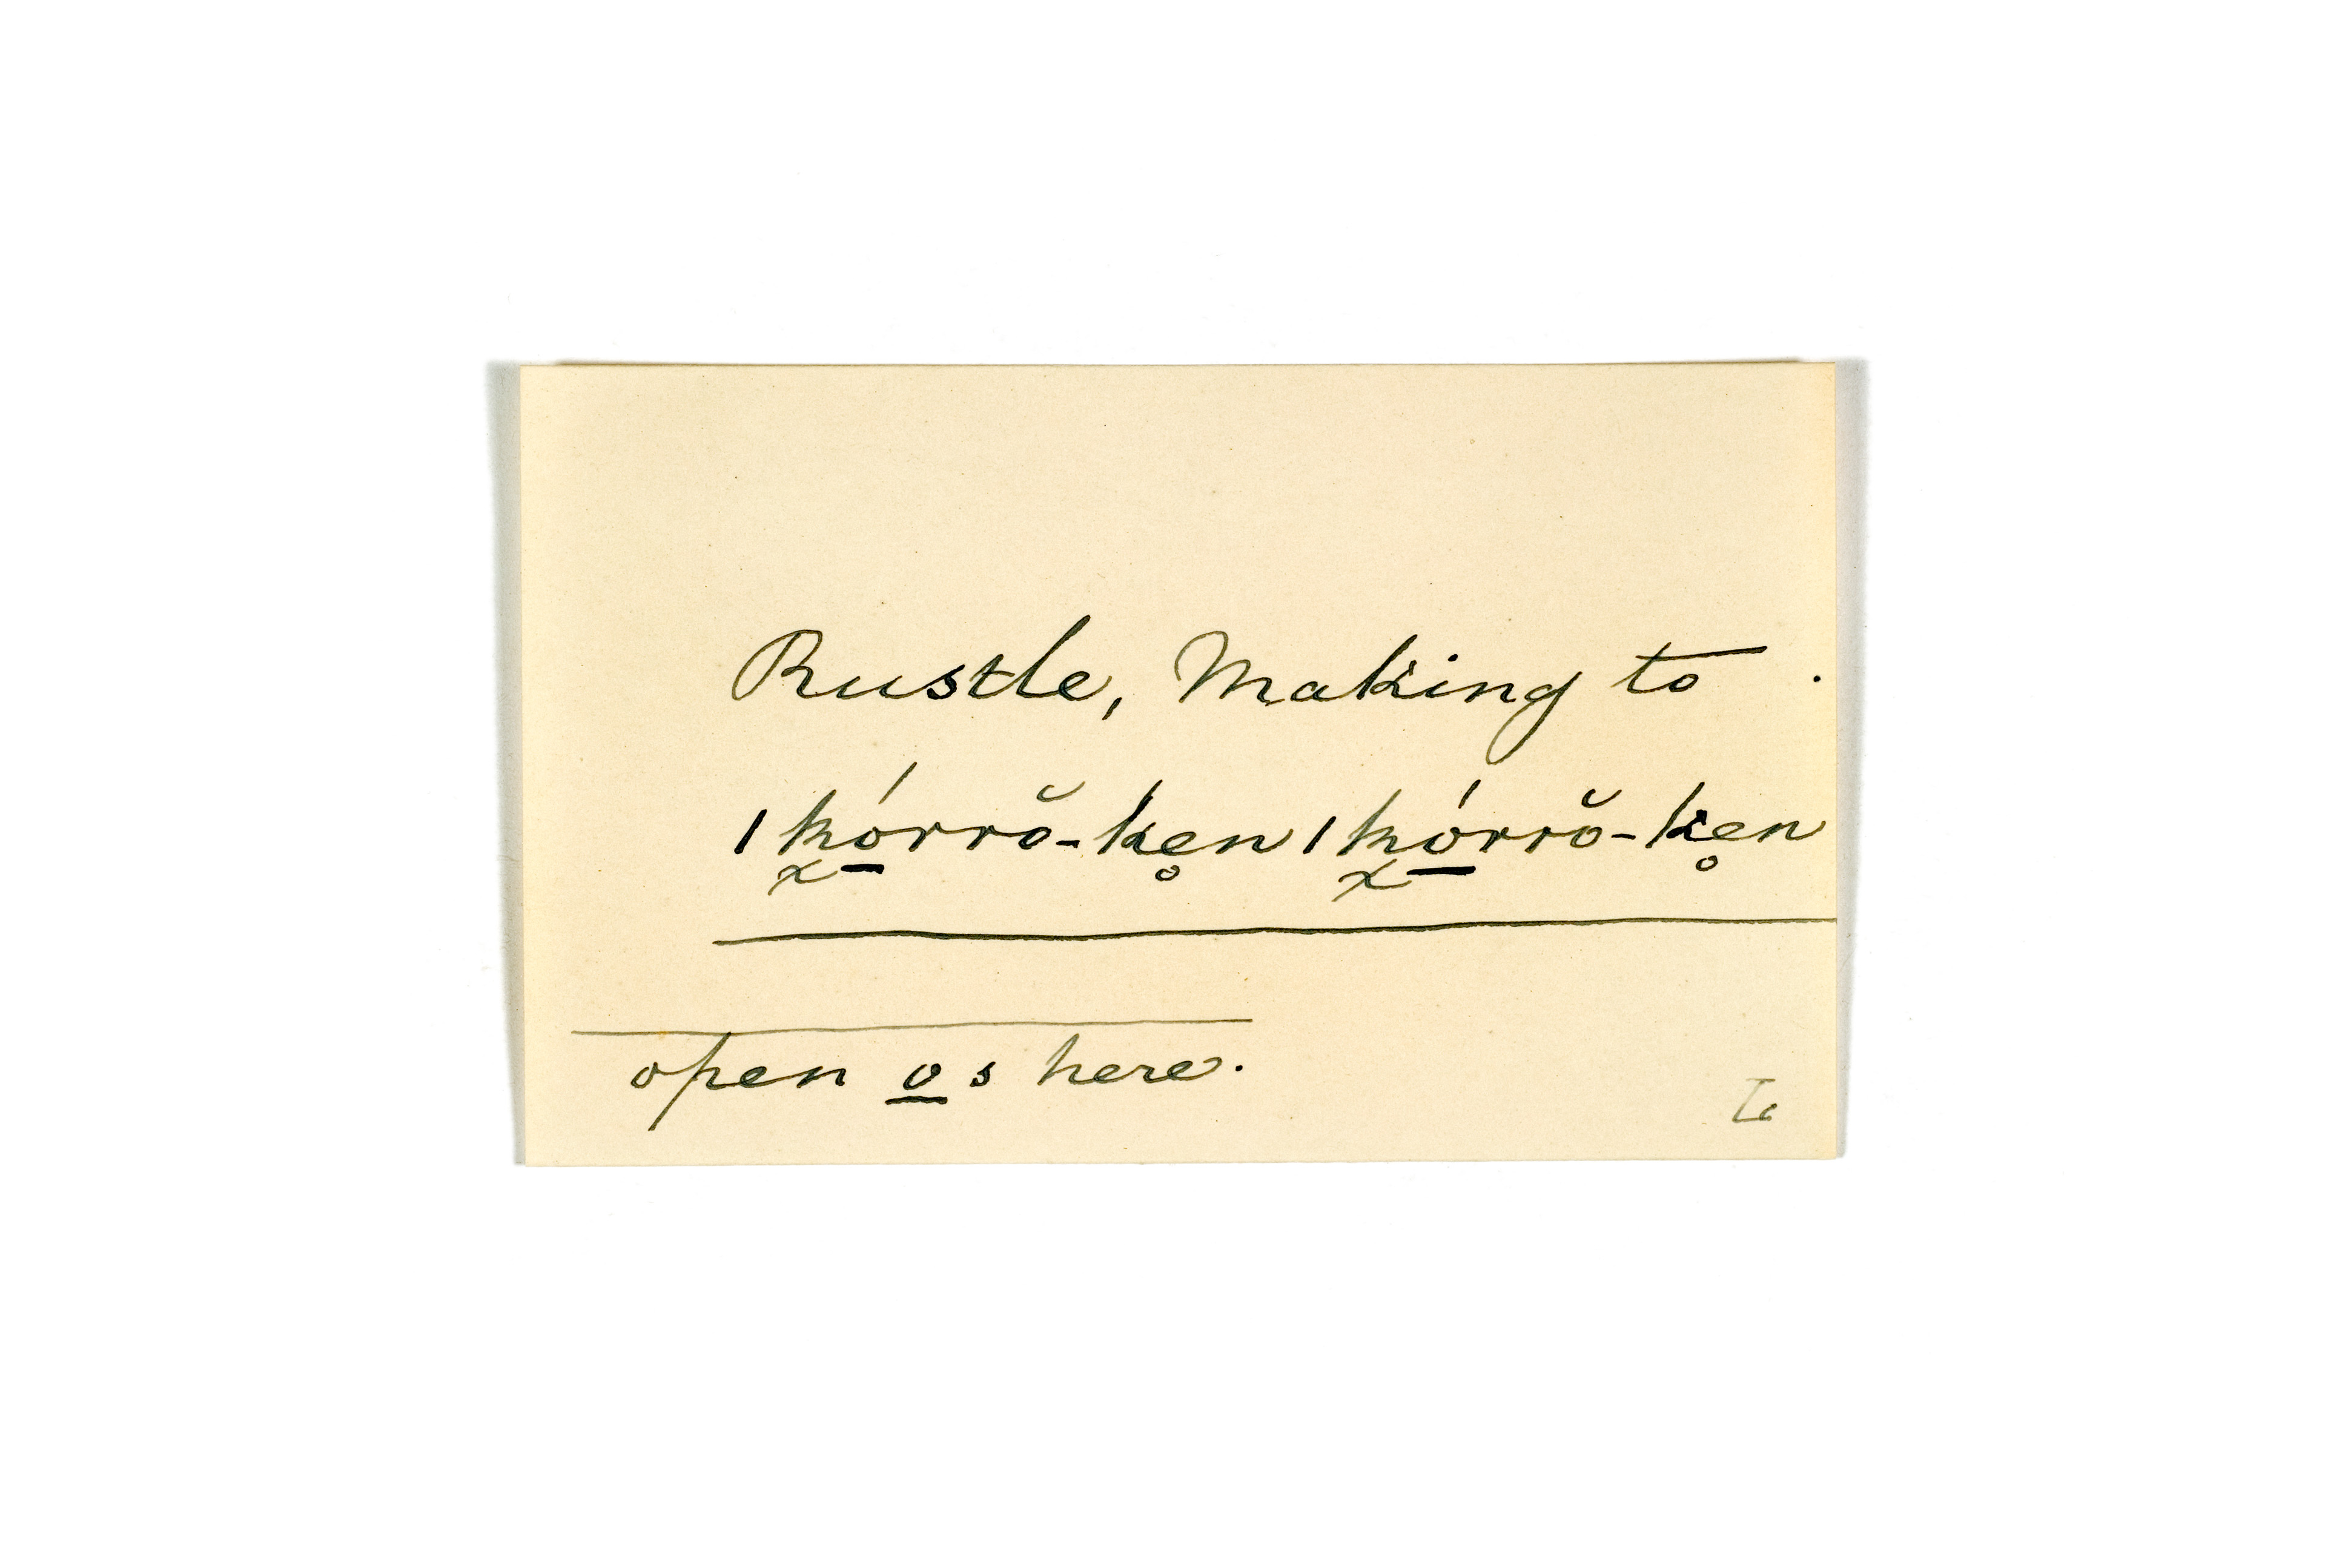 Rustle, Making to .
ǀk͓ó̱rrŏ-ke̥n ǀk͓ó̱rrŏ-ke̥n
open o̱s here.